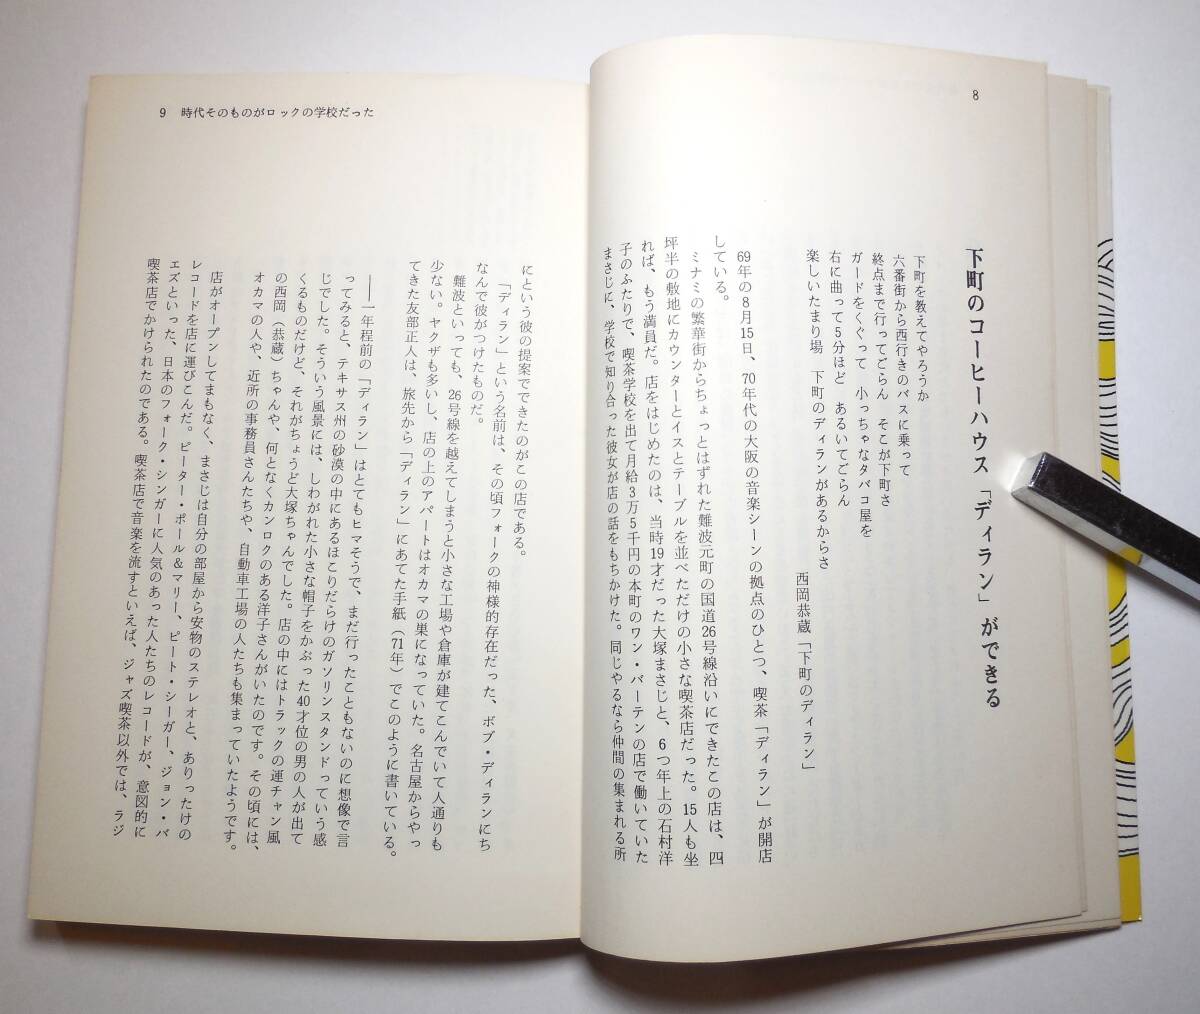 8
下町のコーヒーハウス「ディラン」ができる
下町を教えてやろうか
六番街から西行きのバスに乗って
終点まで行ってごらん　そこが下町さ
ガードをくぐって　小っちゃなタバコ屋を
右に曲って5分ほど　あるいてごらん
楽しいたまり場　下町のディランがあるからさ
西岡恭蔵「下町のディラン」
69年の8月15日、70年代の大阪の音楽シーンの拠点のひとつ、喫茶「ディラン」が開店
している。
ミナミの繁華街からちょっとはずれた難波元町の国道26号線沿いにできたこの店は、四
坪半の敷地にカウンターとイスとテーブルを並べただけの小さな喫茶店だった。15人も坐
れば、もう満員だ。店をはじめたのは、当時19才だった大塚まさじと、6つ年上の石村洋
子のふたりで、喫茶学校を出て月給3万5千円の本町のワン・バーテンの店で働いていた
まさじに、学校で知り合った彼女が店の話をもちかけた。同じやるなら仲間の集まれる所
9　時代そのものがロックの学校だった
にという彼の提案でできたのがこの店である。
「ディラン」という名前は、その頃フォークの神様的存在だった、ボブ・ディランにち
なんで彼がつけたものだ。
難波といっても、26号線を越えてしまうと小さな工場や倉庫が建てこんでいて人通りも
少ない。ヤクザも多いし、店の上のアパートはオカマの巣になっていた。名古屋からやっ
てきた友部正人は、旅先から「ディラン」にあてた手紙（71年）でこのように書いている。
――一年程前の「ディラン」はとてもヒマそうで、まだ行ったこともないのに想像で言
ってみると、テキサス州の砂漠の中にあるほこりだらけのガソリンスタンドっていう感
じでした。そういう風景には、しわがれた小さな帽子をかぶった40才位の男の人が出て
くるものだけど、それがちょうど大塚ちゃんでした。店の中にはトラックの運チャン風
の西岡（恭蔵）ちゃんや、何となくカンロクのある洋子さんがいたのです。その頃には、
オカマの人や、近所の事務員さんたちや、自動車工場の人たちも集まっていたようです。
店がオープンしてまもなく、まさじは自分の部屋から安物のステレオと、ありったけの
レコードを店に運びこんだ。ピーター・ポール＆マリー、ピート・シーガー、ジョン・バ
エズといった、日本のフォーク・シンガーに人気のあった人たちのレコードが、意図的に
喫茶店でかけられたのである。喫茶店で音楽を流すといえば、ジャズ喫茶以外では、ラジ